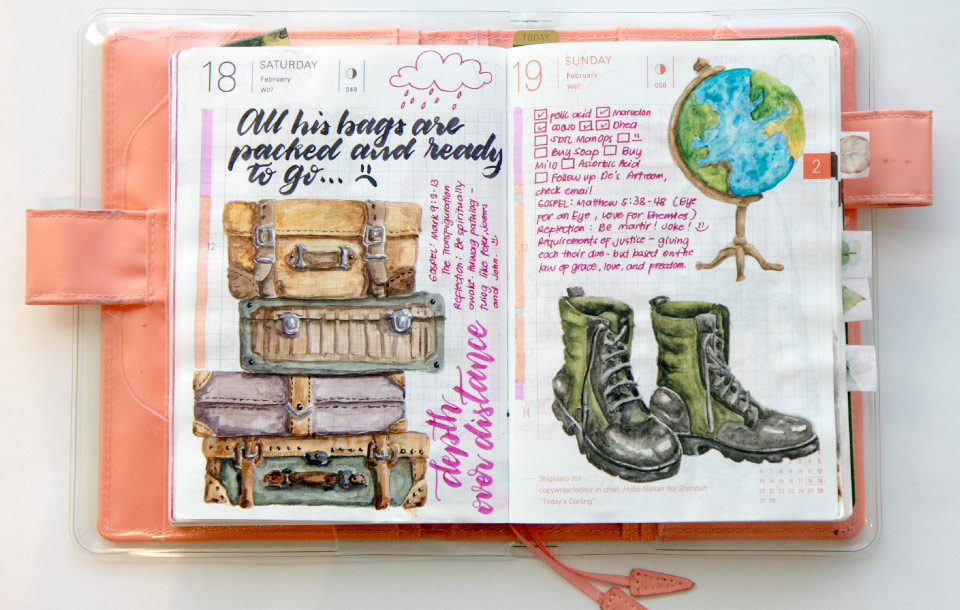 18
SATURDAY
February
W07
049
All his bags are
packed and ready
to go...
GOSPEL: Mark 9:2-13
The Transfiguration
Reflection: Be spiritually
awake. Huwag patulog-
tulog like Peter, James
and John.
depth
over distance
12
TODAY
19
SUNDAY
February
W07
050
Folic acid Marvelon
Dhea
Buy Soap Buy
Milo Ascorbic Acid
Follow up De's Artroom,
check email
GOSPEL: Matthew 5:38-48 (Eye
For an Eye, Love For Enemies)
Reflection: Be martir! Joke!
Requirements of Justice - giving
each their due - but based on the
law of grace, love, and freedom.
12
2
Shigesato Itoi
copywriter/editor in chief, Hobo Nikkan Itoi Shimbun
"Today's Darling"